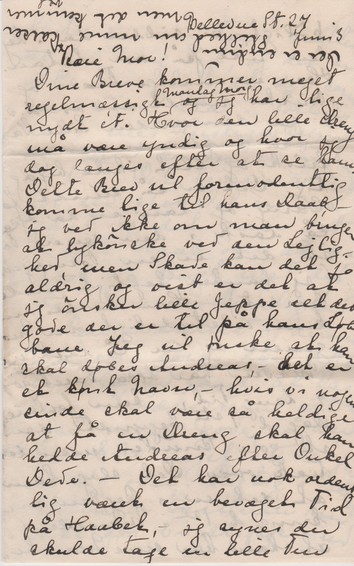 Bellevue St. 27
Juni 3
Kære Mor!
Dine Breve kommer meget
regelmæssigt, og jeg har lige
Mandag Morg
nydt ét. Hvor den lille Dreng
må være yndig og hvor jeg
dog længes efter at se ham
Dette Brev vil formodentlig
komme lige til hans Daab,
jeg ved ikke om man bruger
at lykønske ved den Lejlig-
hed, men Skade kan det jo
aldrig og vist er det at
jeg ønsker lille Jeppe alt det
gode der er til på hans Løbe
bane. Jeg vil ønske at han
skal døbes Andreas, – det er
et kønt Navn, – hvis vi nogen
sinde skal være så heldige
at få en Dreng skal han
hedde Andreas efter Onkel
Dede. – Det har nok ordent
lig været en bevæget Tid
på Haabet, – jeg synes du
skulde tage en lille Tur